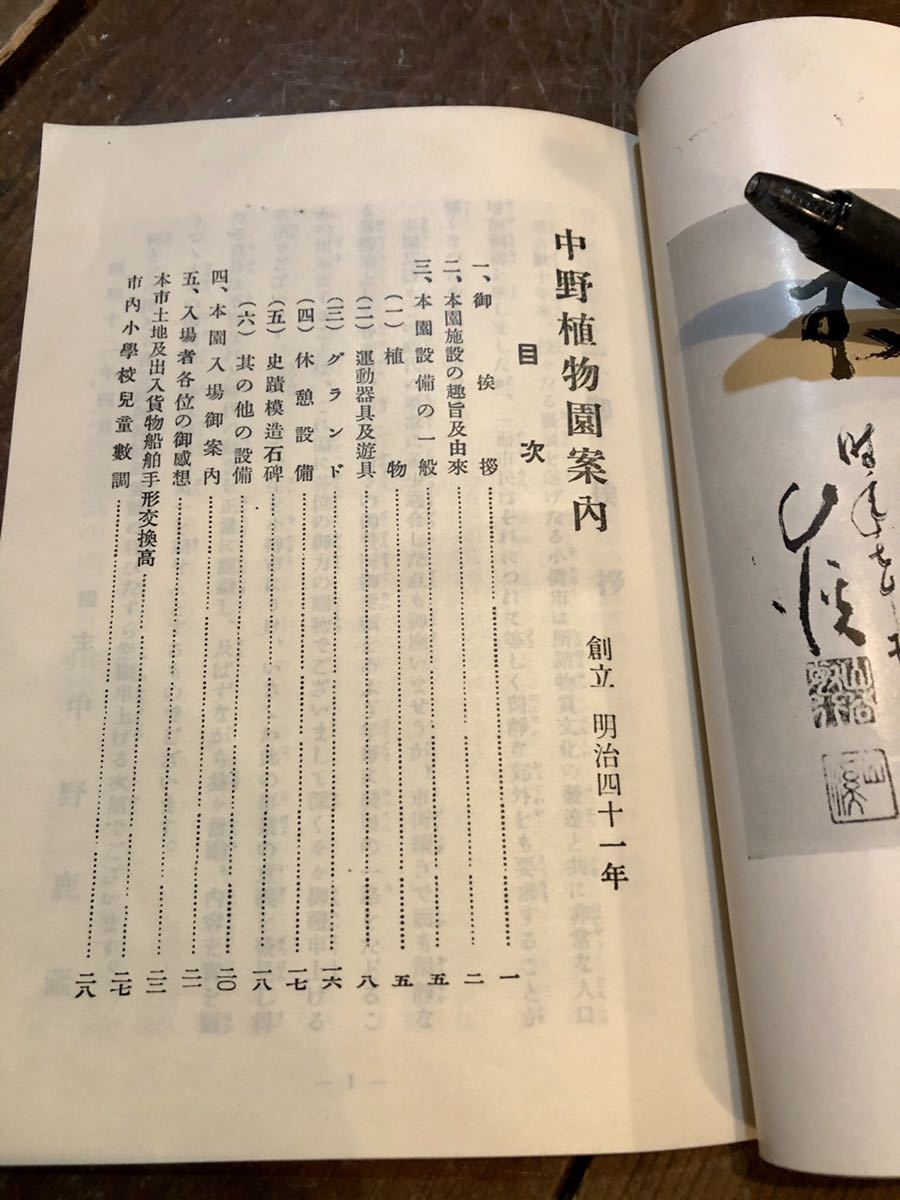 中野植物園案內　創立 明治四十一年
目次
一、御挨拶……一
二、本園施設の趣旨及由來……二
三、本園設備の一般……五
(一)植物……五
(二)運動器具及遊具……八
(三)グランド……一六
(四)休憩設備……一七
(五)史蹟模造石碑……一八
(六)其の他の設備……二〇
四、本園入場御案內……二一
五、入場者各位の御感想……二三
本市土地及出入貨物船舶手形交換高……二七
市內小學校兒童數調……二八
— 1 —